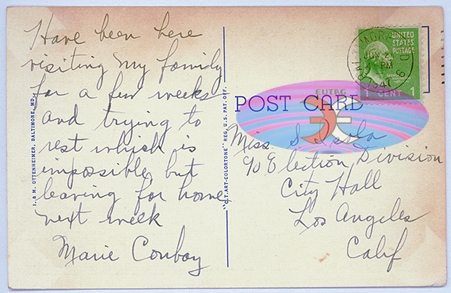 Have been here
visiting my family
for a few weeks
and trying to
rest which is
impossible but
leaving for home
next week
Marie Conboy
I. & M. OTTENHEIMER, BALTIMORE, MD.
"C.T. ART-COLORTONE" REG. U.S. PAT. OFF.
UNITED STATES
POSTAGE
1 CENT 1
POST CARD
Miss
% Election Division
City Hall
Los Angeles
Calif